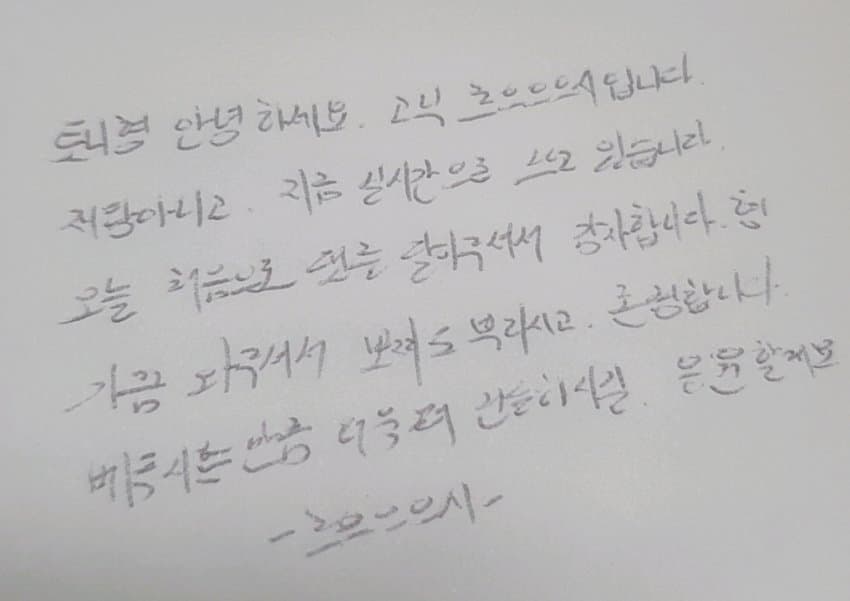 토니형 안녕하세요. 고닉 르으으으시입니다.
저탑아니고. 지금 실시간으로 쓰고 있습니다.
오늘 처음으로 댓글 달아주셔서 감사합니다. 형
가끔 와주셔서 보여도 부라시고. 존경합니다.
베푸시는만큼 더욱더 만흥하시길. 응원할게요
- 르으으으시 -